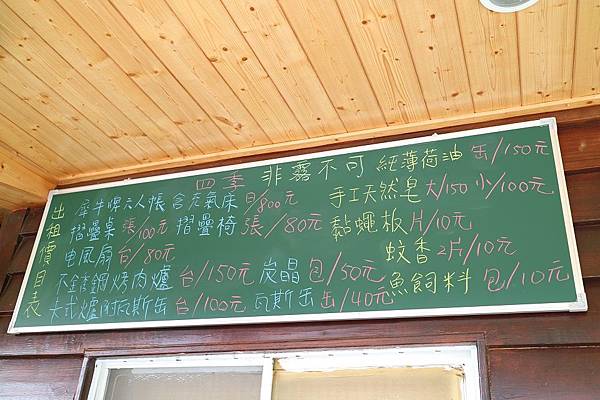 四季 非露不可
出租價目表
犀牛牌六人帳含充氣床 日/800元
摺疊桌 張/100元 摺疊椅 張/80元
電風扇 台/80元
不銹鋼烤肉爐 台/150元 炭晶 包/50元
卡式爐附瓦斯缶 台/100元 瓦斯缶 缶/40元
純薄荷油 缶/150元
手工天然皂 大/150 小/100元
黏蠅板 片/10元
蚊香 2片/10元
魚飼料 包/10元